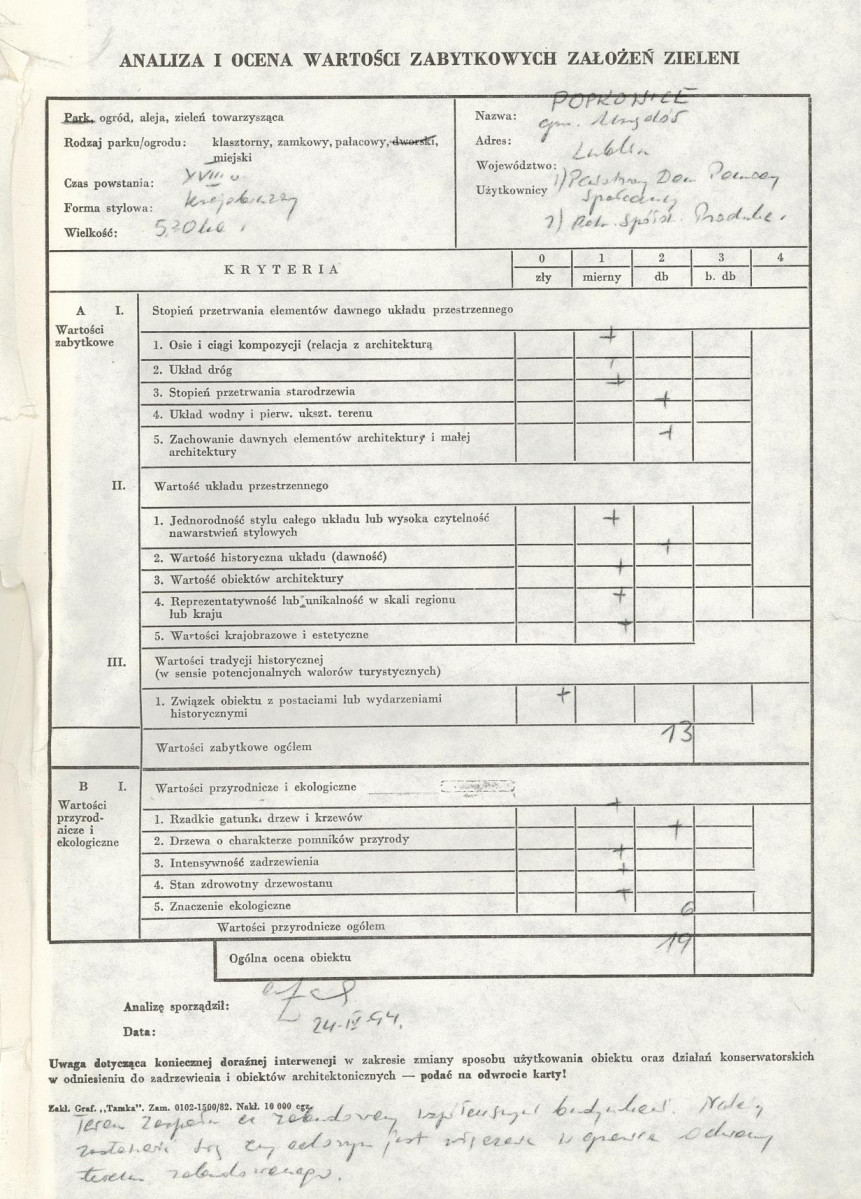 ANALIZA I OCENA WARTOŚCI ZABYTKOWYCH ZAŁOŻEŃ ZIELENI
Park, ogród, aleja, zieleń towarzysząca
Rodzaj parku/ogrodu: klasztorny, zamkowy, pałacowy, dworski,
miejski
Czas powstania: XVIII w.
Forma stylowa: krajobrazowy
Wielkość: 5,20 ha.
Nazwa: POPKOWICE
gm. Urzędów
Adres:
Województwo: Lublin
Użytkownicy 1) Państwowy Dom Pomocy
Społecznej
2) Roln. Spółdz. Produkc.
KRYTERIA
0 1 2 3 4
zły mierny db b. db
A I. Stopień przetrwania elementów dawnego układu przestrzennego
Wartości
zabytkowe
1. Osie i ciągi kompozycji (relacja z architekturą +
2. Układ dróg
3. Stopień przetrwania starodrzewia +
4. Układ wodny i pierw. ukszt. terenu +
5. Zachowanie dawnych elementów architektury i małej +
architektury
II. Wartość układu przestrzennego
1. Jednorodność stylu całego układu lub wysoka czytelność +
nawarstwień stylowych
2. Wartość historyczna układu (dawność) +
3. Wartość obiektów architektury +
4. Reprezentatywność lub unikalność w skali regionu +
lub kraju
5. Wartości krajobrazowe i estetyczne +
III. Wartości tradycji historycznej
(w sensie potencjonalnych walorów turystycznych)
1. Związek obiektu z postaciami lub wydarzeniami +
historycznymi
Wartości zabytkowe ogółem 13
B I. Wartości przyrodnicze i ekologiczne
Wartości
przyrod-
nicze i
ekologiczne
1. Rzadkie gatunki drzew i krzewów +
2. Drzewa o charakterze pomników przyrody +
3. Intensywność zadrzewienia +
4. Stan zdrowotny drzewostanu +
5. Znaczenie ekologiczne +
Wartości przyrodnicze ogółem 6
Ogólna ocena obiektu 19
Analizę sporządził:
Data: 24-IV-94.
Uwaga dotycząca koniecznej doraźnej interwencji w zakresie zmiany sposobu użytkowania obiektu oraz działań konserwatorskich
w odniesieniu do zadrzewienia i obiektów architektonicznych — podać na odwrocie karty!
Zakł. Graf. „Tamka". Zam. 0102-1500/82. Nakł. 10 000 egz.
Teren zespołu zabudowany współczesnymi budynkami. Należy
zastanowić się czy celowym jest ochrony
terenu zabudowanego.